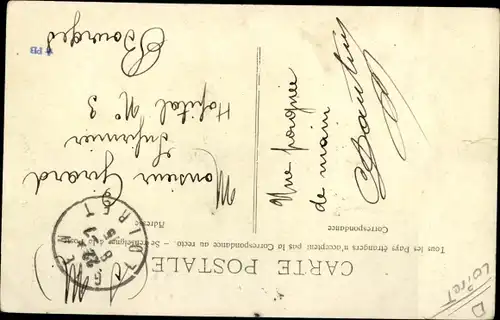 CARTE POSTALE
Tous les Pays étrangers n'acceptent pas la Correspondance au recto. Se renseigner à la Poste
Correspondance
Adresse
Une poignée
de main
Monsieur Girard
Infirmier
Hôpital N° 3
Bourges
LOIRET
* PB
D
Loiret